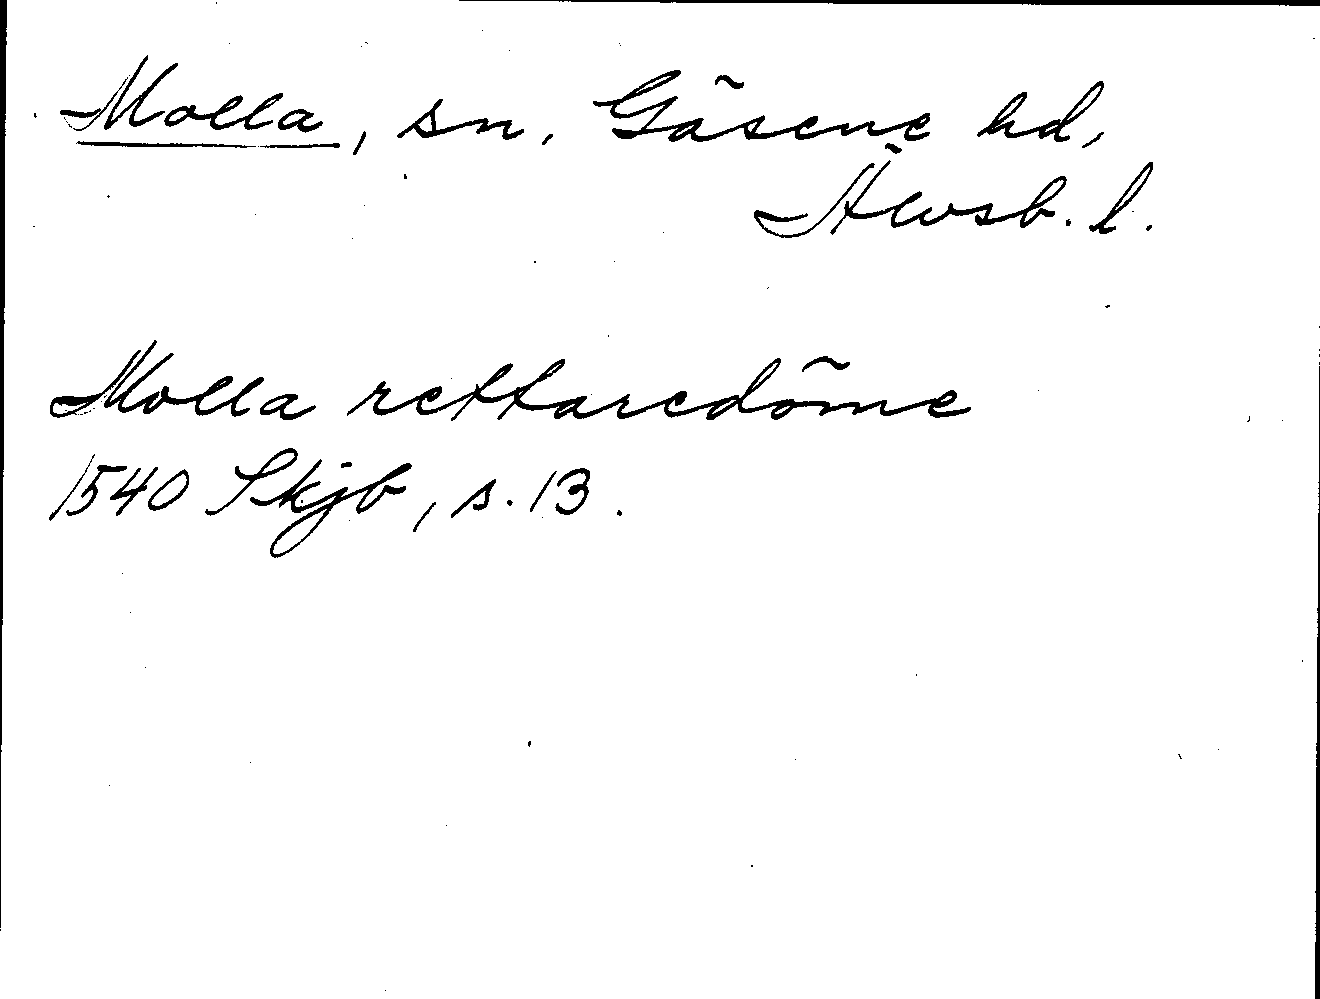 Molla, sn, Gäsene hd,
Älvsb. l.
Molla rettaredöme
1540 Skjb, s. 13.